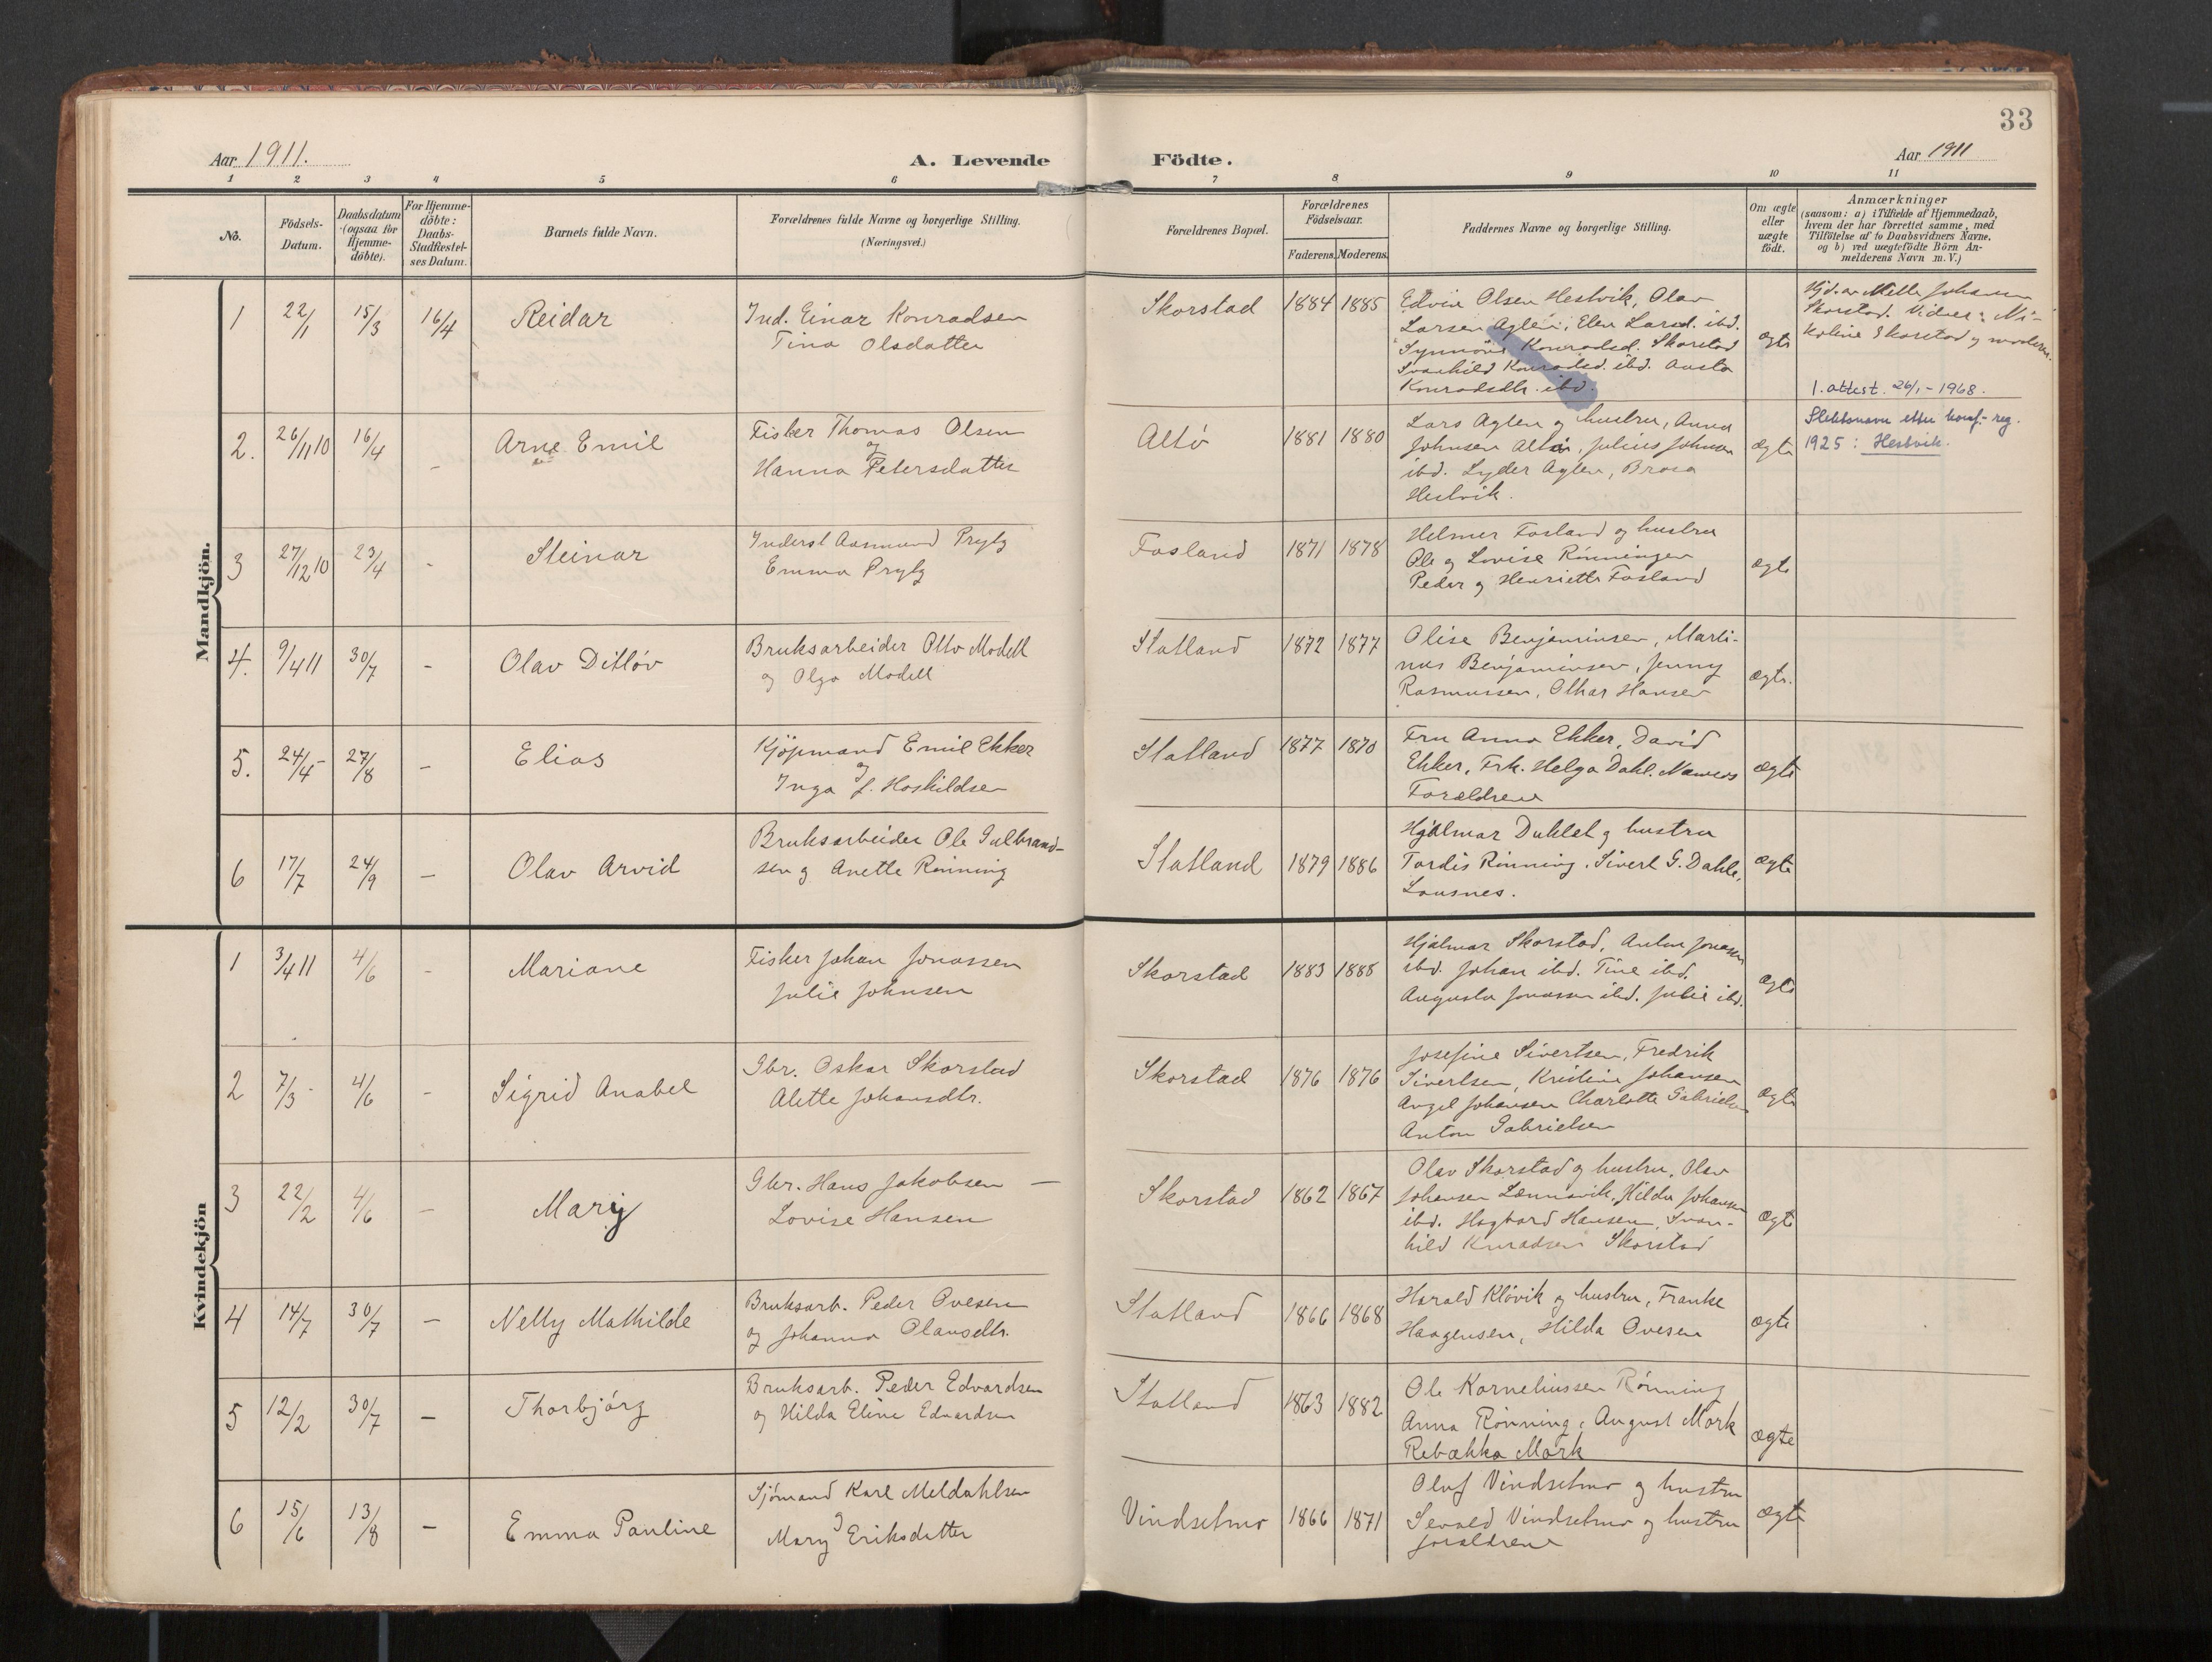 33
Aar 1911.
A. Levende Födte.
Aar 1911
1 2 3 4 5 6 7 8 9 10 11
No.
Födsels-Datum.
Daabsdatum (ogsaa for Hjemmedöbte).
For Hjemmedöbte: Daabs-Stadfæstelses Datum.
Barnets fulde Navn.
Forældrenes fulde Navne og borgerlige Stilling. (Næringsvei.)
Forældrenes Bopæl.
Forældrenes Födselsaar.
Faderens. Moderens.
Faddernes Navne og borgerlige Stilling.
Om ægte eller uægte födt.
Anmærkninger
(saasom: a) i Tilfælde af Hjemmedaab,
hvem der har forrettet samme, med
Tilföielse af to Daabsvidners Navne,
og b) ved uægtefödte Börn An-
melderens Navn m. V.)
Mandkjön.
1 22/1 15/3 16/4 Reidar
Ind. Einar Konradsen
Tina Olsdatter
Skorstad 1884 1885
Edvin Olsen Hestvik, Olav
Larsen Aglen, Elen Larsd. ibd.
Synnöve Konradsd. Skorstad
Svanhild Konradsd. ibd. Aasta
Konradsdtr. ibd.
ægte
Hjd. av Mette Johansen
Skorstad. Vidner: Ni-
koline Skorstad og moderen.
1. attest. 26/1 - 1968.
2. 26/11 10 16/4 - Arne Emil
Fisker Thomas Olsen
og
Hanna Petersdatter
Altö 1881 1880
Lars Aglen og hustru, Anna
Johnsen Altö, Julius Johnsen
ibd. Lyder Aglen, Brosa
Hestvik.
ægte
Slektsnavn etter konf.-reg.
1925: Hestvik.
3 27/12 10 23/4 - Steinar
Inderst Aasmund Prytz
Emma Prytz
Fosland 1871 1878
Helmer Fosland og hustru
Ole og Lovise Rønningen
Peder og Henriette Fosland
ægte
4. 9/4 11 30/7 - Olav Ditløv
Bruksarbeider Otto Modell
og Olga Modell
Statland 1872 1877
Olise Benjaminsen, Marti-
nus Benjaminsen, Jenny
Rasmussen, Othar Hansen
ægte.
5. 24/4 - 27/8 - Elias
Kjöpmand Emil Ekker
og
Inga J. Hoskildsen
Statland 1877 1870
Fru Anna Ekker, David
Ekker, Frk. Helga Dahl. Namsos
Forældrene
ægte
6 17/7 24/9 - Olav Arvid
Bruksarbeider Ole Gulbrand-
sen og Anette Rönning
Statland 1879 1886
Hjalmar Duklet og hustru
Tordis Rönning. Sivert G. Dahle,
Lausnes.
ægte
Kvindekjön
1 3/4 11 4/6 - Mariane
Fisker Johan Jonassen
Julie Johnsen
Skorstad 1883 1888
Hjalmar Skorstad, Anton Jonassen
ibd. Johan ibd. Tine ibd.
Augusta Jonassen ibd. Julie ibd.
ægte
2 7/3 - 4/6 - Sigrid Anabel
Gbr. Oskar Skorstad
Alette Johansdtr.
Skorstad 1876 1876
Josefine Sivertsen, Fredrik
Sivertsen, Kristine Johansen
Angel Johansen Charlotte Gabrielsen
Anton Gabrielsen
ægte
3 22/2 4/6 - Mary
Gbr. Hans Jakobsen -
Lovise Hansen
Skorstad 1862 1867
Olav Skorstad og hustru, Olav
Johansen Lennavik, Hilda Johansen
ibd. Hagbard Hansen, Svan-
hild Konradsen Skorstad
ægte
4 14/7 30/7 - Nelly Mathilde
Bruksarb. Peder Ovesen
og Johanna Olausdtr.
Statland 1866 1868
Harald Klövik og hustru, Franke
Haagensen, Hilda Ovesen
ægte
5 12/2 30/7 - Thorbjörg
Bruksarb. Peder Edvardsen
og Hilda Eline Edvardsen
Statland 1863 1882
Ole Korneliussen Rønning
Anna Rönning, August Mork
Rebækka Mork
ægte
6 15/6 13/8 - Emma Pauline
Sjömand Karl Meldahlsen
og
Mary Eriksdatter
Vindsetmo 1866 1871
Oluf Vindsetmo og hustru
Sevald Vindsetmo og hustru
forældrene
ægte